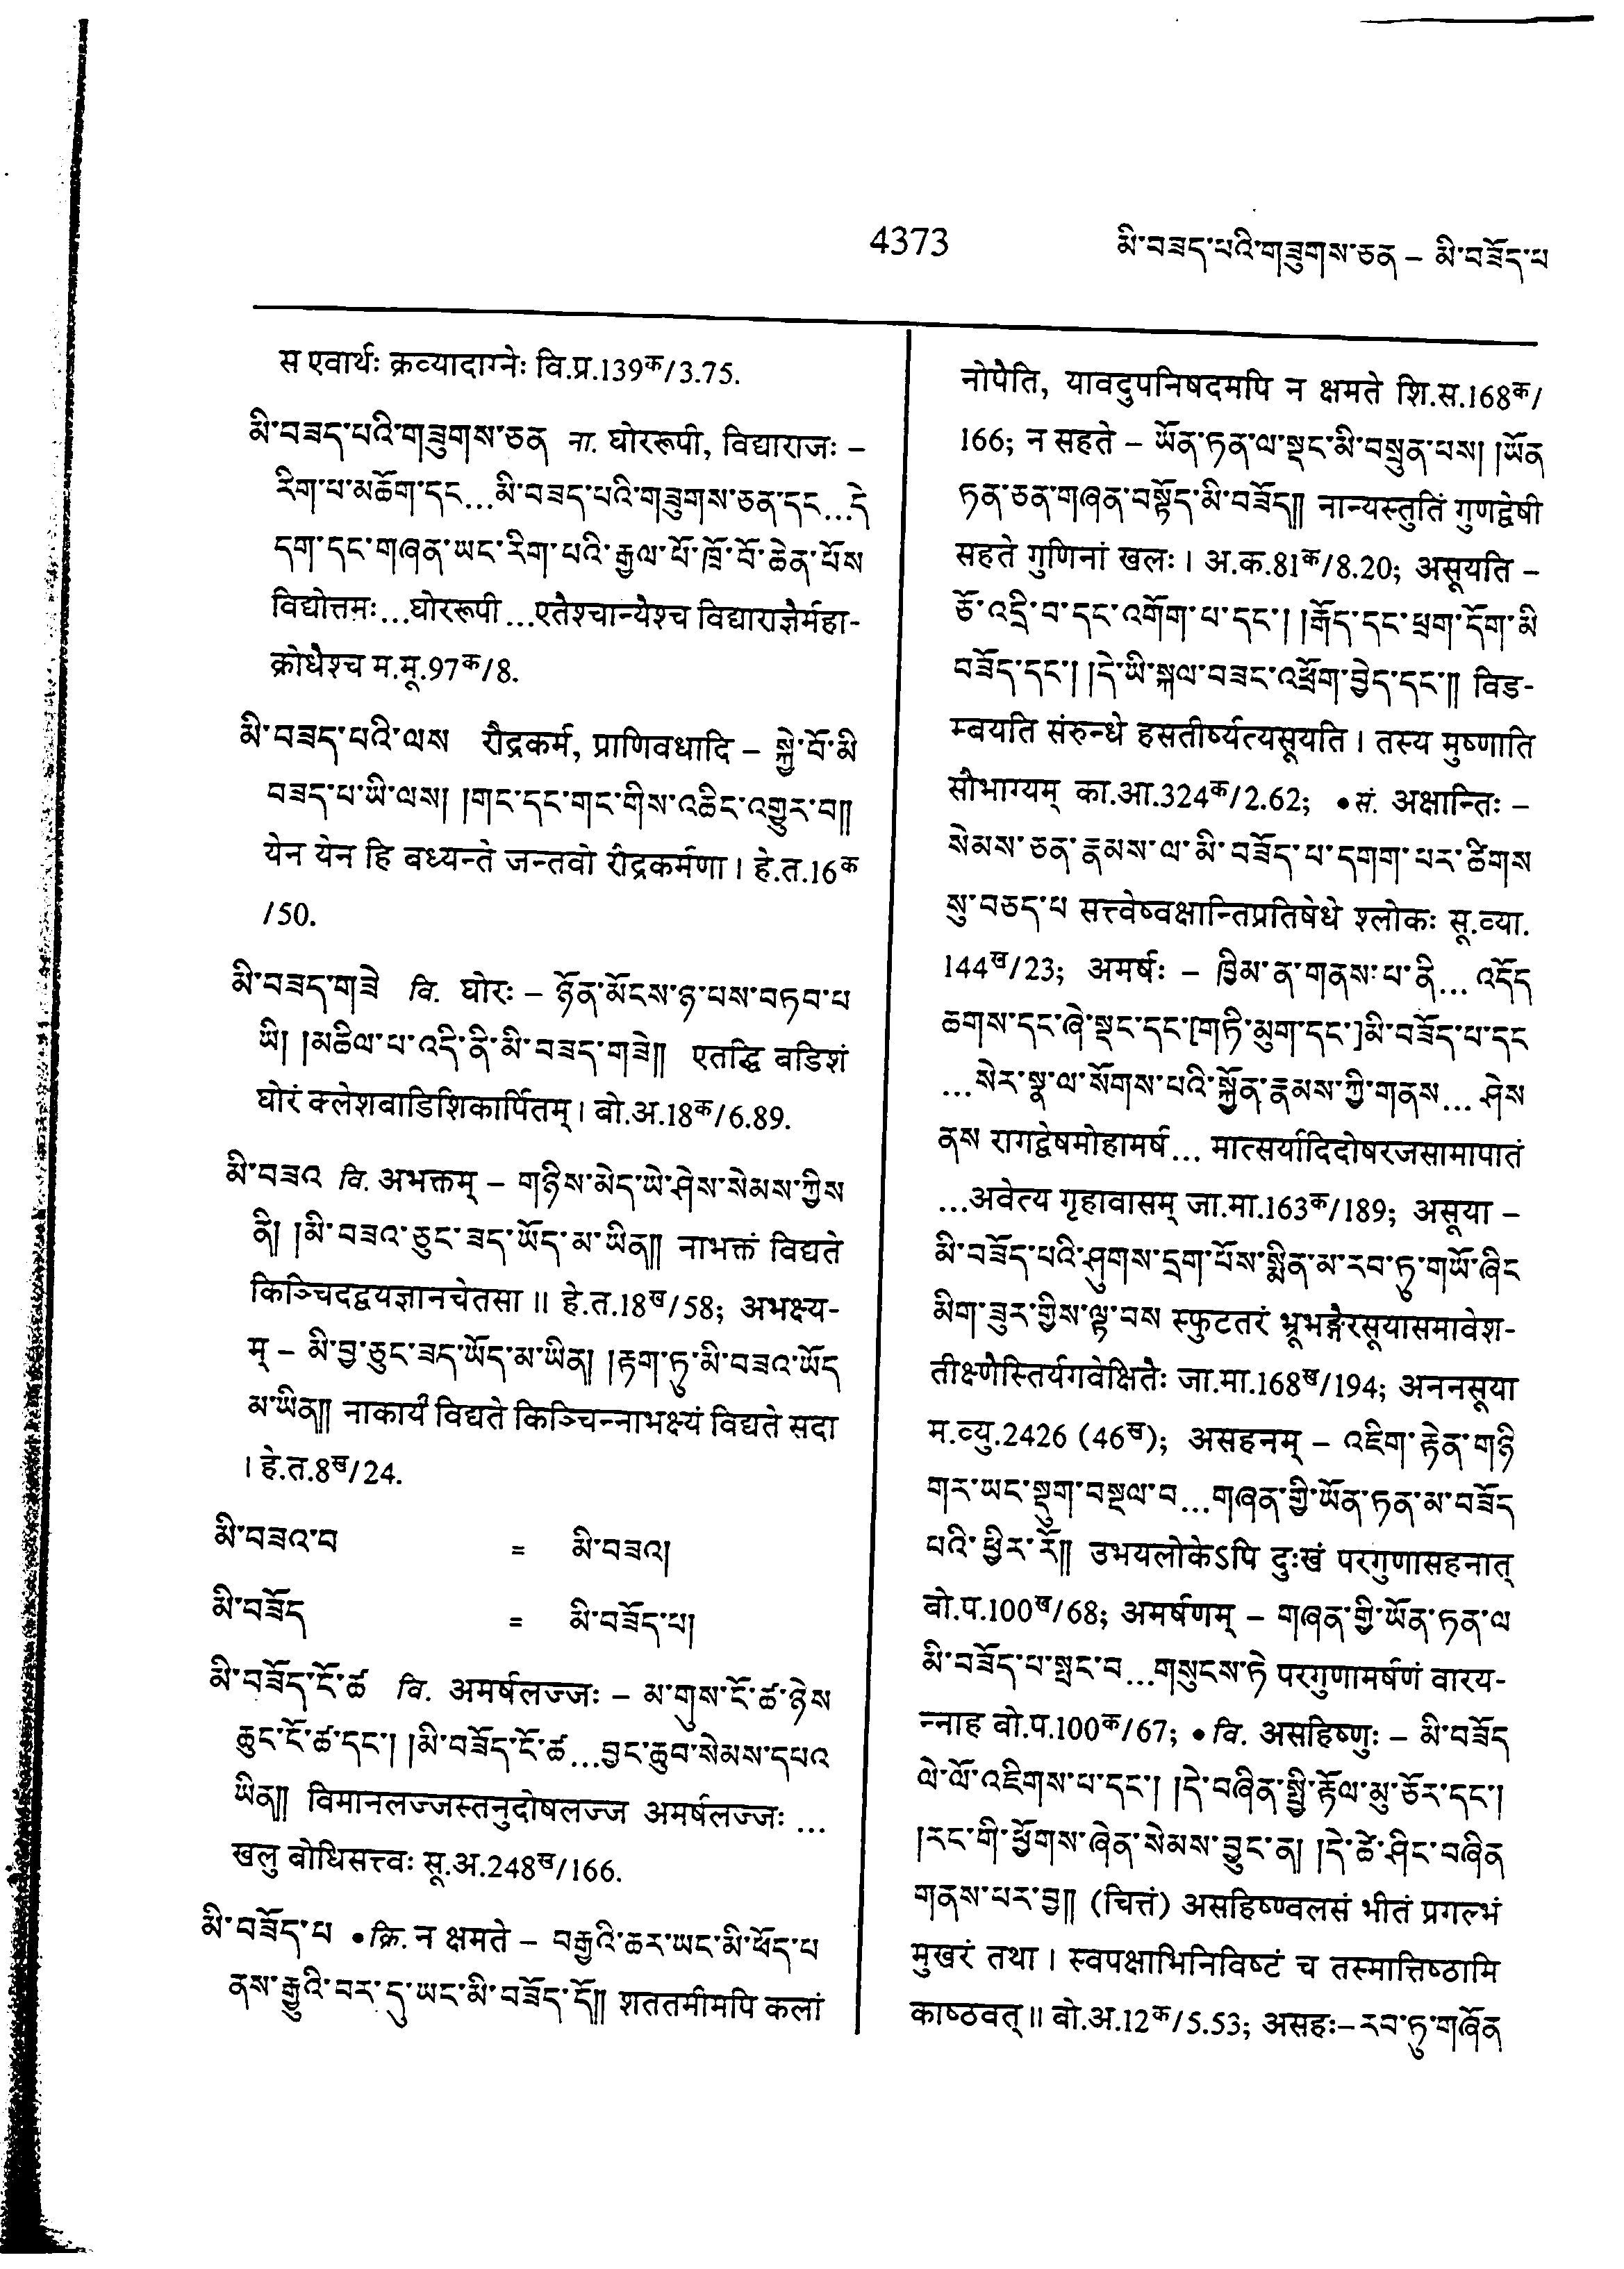 4373
མི་བཟད་པའི་གཟུགས་ཅན – མི་བཟོད་པ
स एवार्थः क्रव्यादाग्नेः वि.प्र.139क/3.75.
མི་བཟད་པའི་གཟུགས་ཅན ना. घोररूपी, विद्याराजः –
རིག་པ་མཆོག་དང...མི་བཟད་པའི་གཟུགས་ཅན་དང...དེ
དག་དང་གཞན་ཡང་རིག་པའི་རྒྱལ་པོ་ཁྲོ་བོ་ཆེན་པོས
विद्योत्तमः...घोररूपी...एतैश्चान्यैश्च विद्याराज्ञैर्महा-
क्रोधैश्च म.मू.97क/8.
མི་བཟད་པའི་ལས रौद्रकर्म, प्राणिवधादि – སྐྱེ་བོ་མི
བཟད་པ་ཡི་ལས། །གང་དང་གང་གིས་འཆིང་འགྱུར་བ༎
येन येन हि बध्यन्ते जन्तवो रौद्रकर्मणा । हे.त.16क
/50.
མི་བཟད་གཟེ वि. घोरः – ཉོན་མོངས་ཉ་པས་བཏབ་པ
ཡི། །མཆིལ་པ་འདི་ནི་མི་བཟད་གཟེ༎ एतद्धि बडिशं
घोरं क्लेशबाडिशिकार्पितम् । बो.अ.18क/6.89.
མི་བཟའ वि. अभक्तम् – གཉིས་མེད་ཡེ་ཤེས་སེམས་ཀྱིས
ནི། །མི་བཟའ་ཅུང་ཟད་ཡོད་མ་ཡིན༎ नाभक्तं विद्यते
किञ्चिदद्वयज्ञानचेतसा ॥ हे.त.18ख/58; अभक्ष्य-
म् – མི་བྱ་ཅུང་ཟད་ཡོད་མ་ཡིན། །རྟག་ཏུ་མི་བཟའ་ཡོད
མ་ཡིན༎ नाकार्यं विद्यते किञ्चिन्नाभक्ष्यं विद्यते सदा
। हे.त.8ख/24.
མི་བཟའ་བ = མི་བཟའ།
མི་བཟོད = མི་བཟོད་པ།
མི་བཟོད་ངོ་ཚ वि. अमर्षलज्जः – མ་གུས་ངོ་ཚ་ཉེས
ཆུང་ངོ་ཚ་དང་། །མི་བཟོད་ངོ་ཚ...བྱང་ཆུབ་སེམས་དཔའ
ཡིན༎ विमानलज्जस्तनुदोषलज्ज अमर्षलज्जः ...
खलु बोधिसत्त्वः सू.अ.248ख/166.
མི་བཟོད་པ •क्रि. न क्षमते – བརྒྱའི་ཆར་ཡང་མི་ཕོད་པ
ནས་རྒྱུའི་བར་དུ་ཡང་མི་བཟོད་དོ༎ शततमीमपि कलां
नोपैति, यावदुपनिषदमपि न क्षमते शि.स.168क/
166; न सहते – ཡོན་ཏན་ལ་སྡང་མི་བསྲུན་པས། །ཡོན
ཏན་ཅན་གཞན་བསྟོད་མི་བཟོད༎ नान्यस्तुतिं गुणद्वेषी
सहते गुणिनां खलः । अ.क.81क/8.20; असूयति –
ཅོ་འདྲི་བ་དང་འགོག་པ་དང་། །རྒོད་དང་ཕྲག་དོག་མི
བཟོད་དང་། །དེ་ཡི་སྐལ་བཟང་འཕྲོག་བྱེད་དང་༎ विड-
म्बयति संरुन्धे हसतीर्ष्यत्यसूयति । तस्य मुष्णाति
सौभाग्यम् का.आ.324क/2.62; •सं. अक्षान्तिः –
སེམས་ཅན་རྣམས་ལ་མི་བཟོད་པ་དགག་པར་ཚིགས
སུ་བཅད་པ सत्त्वेष्वक्षान्तिप्रतिषेधे श्लोकः सू.व्या.
144ख/23; अमर्षः – ཁྱིམ་ན་གནས་པ་ནི... འདོད
ཆགས་དང་ཞེ་སྡང་དང་[གཏི་མུག་དང་]མི་བཟོད་པ་དང
...སེར་སྣ་ལ་སོགས་པའི་སྐྱོན་རྣམས་ཀྱི་གནས... ཤེས
ནས रागद्वेषमोहामर्ष... मात्सर्यादिदोषरजसामापातं
...अवेत्य गृहावासम् जा.मा.163क/189; असूया –
མི་བཟོད་པའི་ཤུགས་དྲག་པོས་སྨིན་མ་རབ་ཏུ་གཡོ་ཞིང
མིག་ཟུར་གྱིས་ལྟ་བས स्फुटतरं भ्रूभङ्गैरसूयासमावेश-
तीक्ष्णैस्तिर्यगवेक्षितैः जा.मा.168ख/194; अननसूया
म.व्यु.2426 (46ख); असहनम् – འཇིག་རྟེན་གཉི
གར་ཡང་སྡུག་བསྔལ་བ...གཞན་གྱི་ཡོན་ཏན་མ་བཟོད
པའི་ཕྱིར་རོ༎ उभयलोकेऽपि दुःखं परगुणासहनात्
बो.प.100ख/68; अमर्षणम् – གཞན་གྱི་ཡོན་ཏན་ལ
མི་བཟོད་པ་སྤྲང་བ...གསུངས་ཏེ परगुणामर्षणं वारय-
न्नाह बो.प.100क/67; •वि. असहिष्णुः – མི་བཟོད
ལེ་ལོ་འཇིགས་པ་དང་། །དེ་བཞིན་སྤྱི་རྟོལ་མུ་ཅོར་དང་།
།རང་གི་ཕྱོགས་ཞེན་སེམས་བྱུང་ན། །དེ་ཚེ་ཤིང་བཞིན
གནས་པར་བྱ༎ (चित्तं) असहिष्ण्वलसं भीतं प्रगल्भं
मुखरं तथा । स्वपक्षाभिनिविष्टं च तस्मात्तिष्ठामि
काष्ठवत् ॥ बो.अ.12क/5.53; असहः– རབ་ཏུ་གཞོན